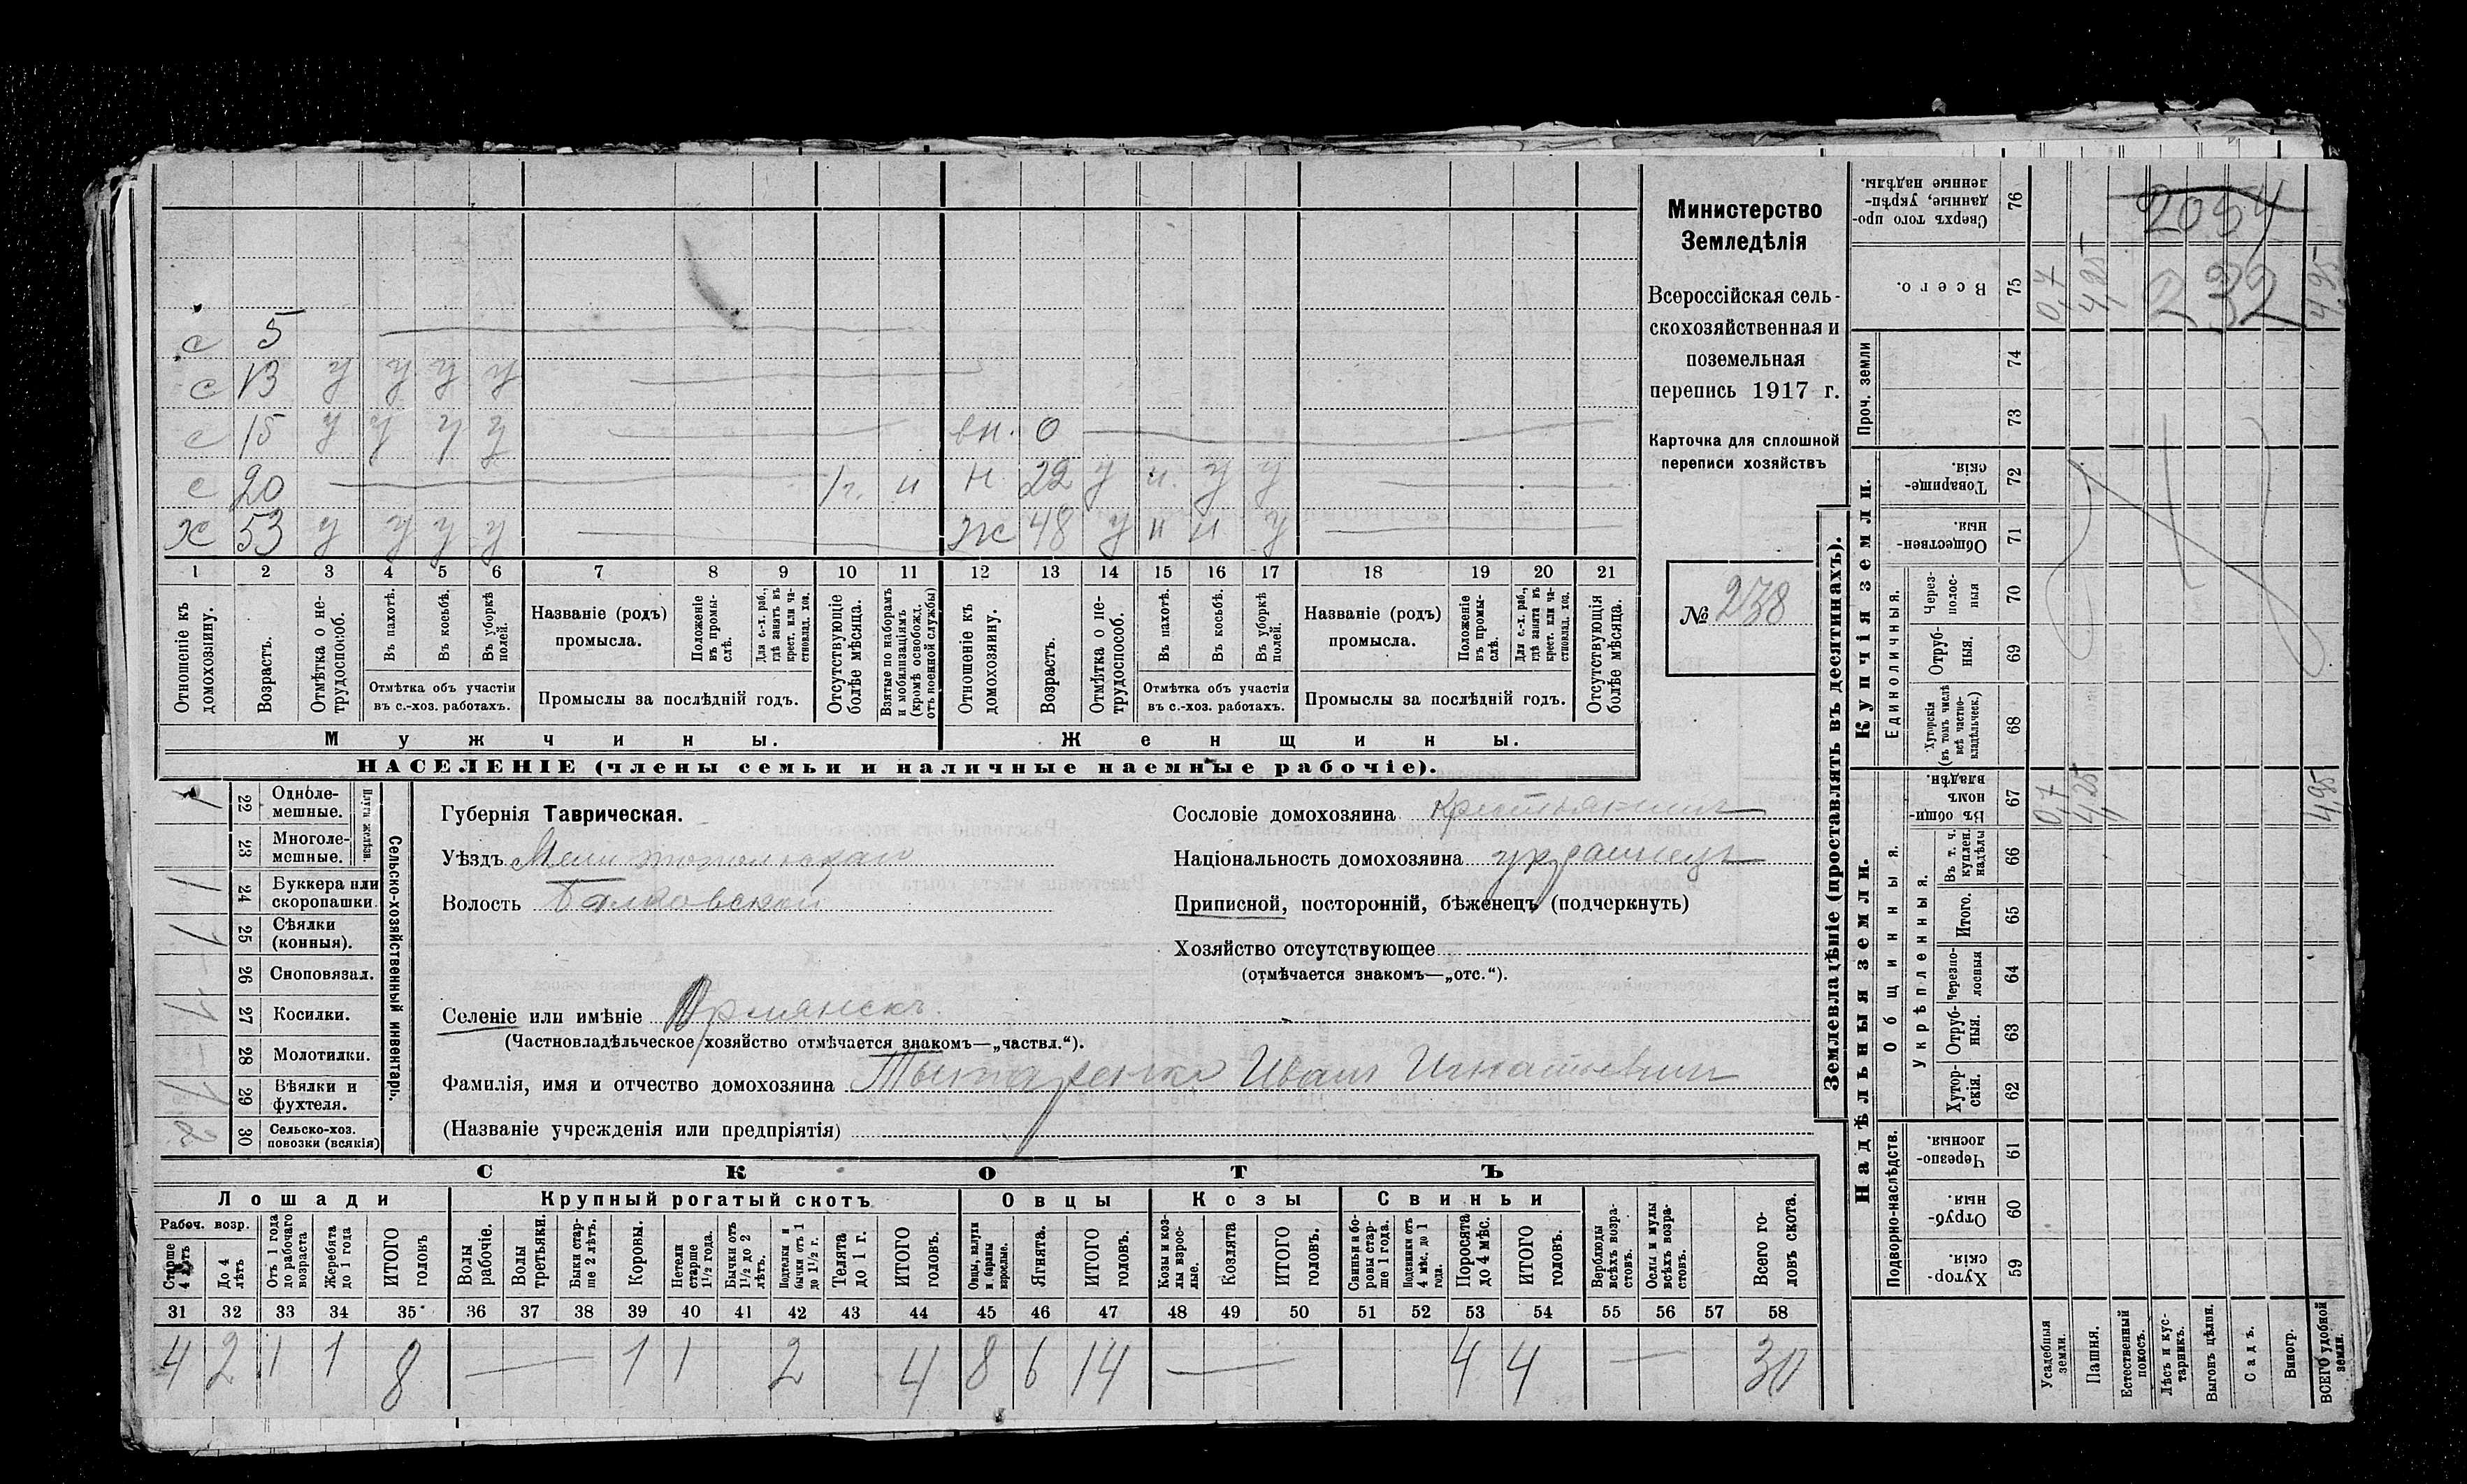 Министерство
Земледѣлія
Всероссійская сель-
скохозяйственная и
поземельная
перепись 1917 г.
Карточка для сплошной
переписи хозяйствъ
№ 238
2054
232
с 5
с 13 у у у у
с 15 у у у у вн. 0
с 20 1 г. н н 22 у н. у у
х 53 у у у у ж 48 у н н у
1 2 3 4 5 6 7 8 9 10 11 12 13 14 15 16 17 18 19 20 21
Отношеніе къ домохозяину.
Возрастъ.
Отмѣтка о не-трудоспособ.
Въ пахотѣ.
Въ косьбѣ.
Въ уборкѣ полей.
Отмѣтка объ участіи
въ с.-хоз. работахъ.
Названіе (родъ)
промысла.
Положеніе въ промы-слѣ.
Для с.-х. раб., гдѣ занятъ въ крест. или ча-стновлад. хоз.
Промыслы за послѣдній годъ.
Отсутствующіе болѣе мѣсяца.
Взятые по наборамъ и мобилизаціямъ (кромѣ освобожд. отъ военной службы)
Отношеніе къ домохозяину.
Возрастъ.
Отмѣтка о не-трудоспособ.
Въ пахотѣ.
Въ косьбѣ.
Въ уборкѣ полей.
Отмѣтка объ участіи
въ с.-хоз. работахъ.
Названіе (родъ)
промысла.
Положеніе въ промы-слѣ.
Для с.-х. раб., гдѣ занята въ крест. или ча-стновлад. хоз.
Промыслы за послѣдній годъ.
Отсутствующія болѣе мѣсяца.
Мужчины. Женщины.
НАСЕЛЕНІЕ (члены семьи и наличные наемные рабочіе).
Сельско-хозяйственный инвентарь.
Плуги желѣзн.
1 22 Одноле-мешные.
23 Многоле-мешные.
1 24 Буккера или скоропашки.
1 25 Сѣялки (конныя).
26 Сноповязал.
1 27 Косилки.
28 Молотилки.
1 29 Вѣялки и фухтеля.
2 30 Сельско-хоз. повозки (всякія)
Губернія Таврическая.
Уѣздъ Мелитопольскаго
Волость Балковской
Селеніе или имѣніе Врмянскъ.
(Частновладѣльческое хозяйство отмѣчается знакомъ—„частвл.“).
Фамилія, имя и отчество домохозяина Иванъ Игнатьевич
(Названіе учрежденія или предпріятія)
Сословіе домохозяина крестьянинъ
Національность домохозяина
Приписной, посторонній, бѣженецъ (подчеркнуть)
Хозяйство отсутствующее
(отмѣчается знакомъ—„отс.“).
СКОТЪ
Лошади Крупный рогатый скотъ Овцы Козы Свиньи
Рабоч. возр.
Старше 4 лѣтъ
До 4 лѣтъ
Отъ 1 года до рабочаго возраста
Жеребята до 1 года
ИТОГО головъ
Волы рабочіе.
Волы третьяки.
Быки стар-ше 2 лѣтъ.
Коровы.
Нетели старше 1½ года.
Бычки отъ 1½ до 2 лѣтъ.
Подтелки и бычки отъ 1 до 1½ г.
Телята до 1 г.
ИТОГО головъ.
Овцы, валухи и бараны взрослые.
Ягнята.
ИТОГО головъ.
Козы и коз-лы взрос-лые.
Козлята
ИТОГО головъ.
Свиньи и бо-ровы стар-ше 1 года.
Подсвинки отъ 4 мѣс. до 1 года.
Поросята до 4 мѣс.
ИТОГО головъ.
Верблюды всѣхъ возра-стовъ.
Ослы и мулы всѣхъ возра-стовъ.
Всего го-ловъ скота.
31 32 33 34 35 36 37 38 39 40 41 42 43 44 45 46 47 48 49 50 51 52 53 54 55 56 57 58
4 2 1 1 8 — 1 1 2 4 8 6 14 — 4 4 — 30
Землевладѣніе (проставлять въ десятинахъ).
Надѣльныя земли. Купчія земли. Проч. земли
Подворно-наслѣдств.
Общинныя.
Укрѣпленныя.
Единоличныя.
76 Сверхъ того про-данные, укрѣп-ленные надѣлы.
75 Всего. 0,7 4,25 4,95
74
73
72 Товарище-скія.
71 Обществен-ныя.
70 Через-полос-ныя
69 Отруб-ныя.
68 Хуторскія (въ томъ числѣ всѣ частно-владѣльческ.)
67 Въ общин-номъ владѣн. 0,7 4,25 4,95
66 Въ т. ч. куплен. надѣлы
65 Итого.
64 Черезпо-лосныя
63 Отруб-ныя.
62 Хутор-скія.
61 Черезпо-лосныя.
60 Отруб-ныя.
59 Хутор-скія.
Усадебныя земли.
Пашня.
Естественный покосъ.
Лѣсъ и кус-тарникъ.
Выгонъ цѣлин.
Садъ.
Виногр.
ВСЕГО удобной земли.